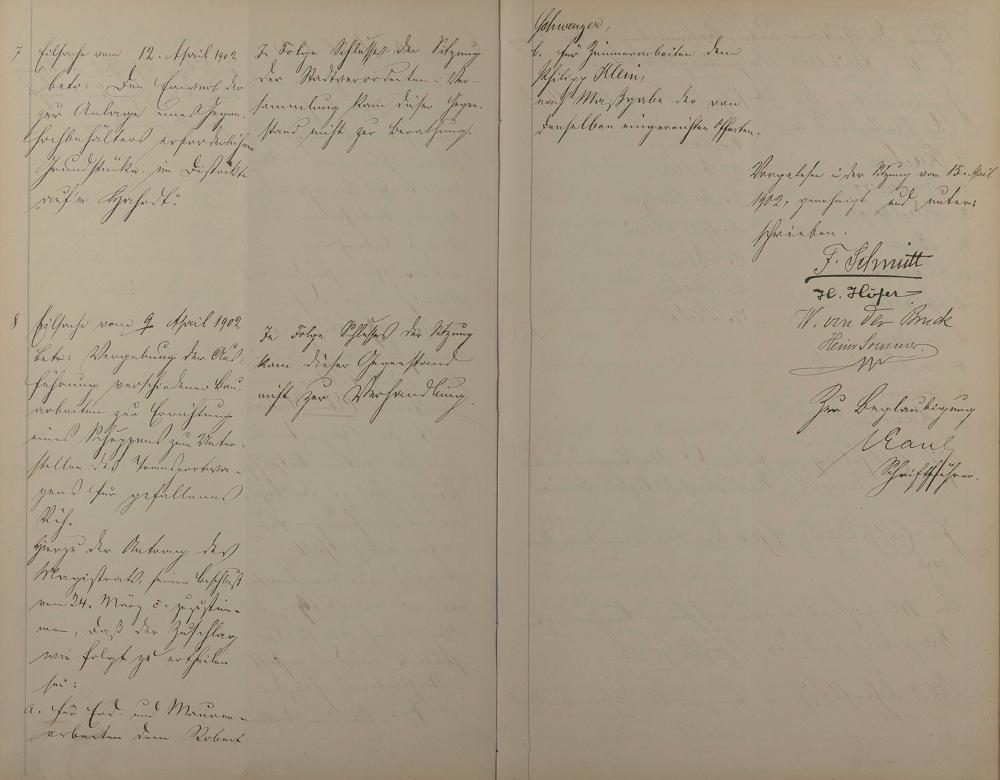 7
Eilsache vom 12. April 1902
betr: Den Erwerb der
zur Anlage eines Gegen-
hochbehälters erforderlichen
Grundstücke im Distrikte
"auf'm
In Folge Schlusses der Sitzung
der Stadtverordneten-Ver-
sammlung kam dieser Gegen-
stand nicht zur Berathung.
8
Eilsache vom 9 April 1902
betr: Vergebung der Aus-
führung verschiedener Bau-
arbeiten zur Errichtung
eines Schuppens zum Unter-
stellen des Transportwa-
gens für gefallenes
Vieh.
Hierzu der Antrag des
Magistrats, seinem Beschluß
vom 24. März c. zuzustim-
men, daß der Zuschlag
wie folgt zu ertheilen
sei:
a. für Erd- und Maurer-
arbeiten dem Robert
In Folge Schlusses der Sitzung
kam dieser Gegenstand
nicht zur Verhandlung.
Schwenzer,
b. für Zimmerarbeiten dem
Philipp Klein,
nach Maßgabe der von
denselben eingereichten Offerten.
Vorgelesen in der Sitzung vom 15. April
1902, genehmigt und unter-
schrieben.
F. Schmitt
H. Höfer
W. von der Bruck
Heinr Sommer
Zur Beglaubigung
Kaul
Schriftführer.